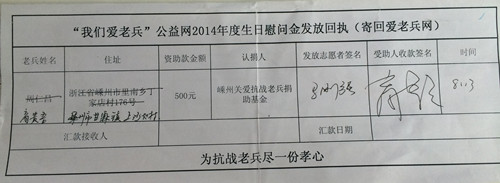 “我们爱老兵”公益网2014年度生日慰问金发放回执（寄回爱老兵网）
老兵姓名 住址 资助款金额 认捐人 发放志愿者签名 受助人收款签名 时间
周仁昌 浙江省嵊州市里南乡丁家店村176号 500元 嵊州关爱抗战老兵捐助基金 8.13
嵊州市甘霖镇
汇款接收人 汇款日期
为抗战老兵尽一份孝心